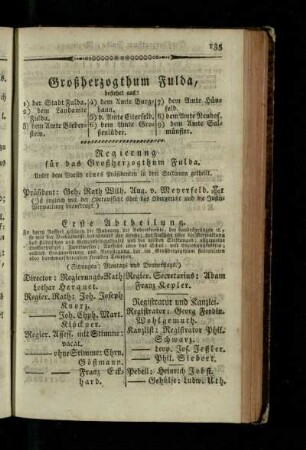 135
Großherzogthum Fulda,
bestehet aus:
1) der Stadt Fulda,
2) dem Landamte Fulda,
3) dem Amte Bieberstein,
4) dem Amte Burghaun,
5) d. Amte Eiterfeld,
6) dem Amte Großenlüder.
7) dem Amte Hünfeld,
8) dem Amte Neuhof,
9) dem Amte Salmünster.
Regierung
für das Großherzogthum Fulda.
Unter dem Vorsitz eines Präsidenten in drei Sectionen getheilt.
Präsident: Geh. Rath Wilh. Aug. v. Meyerfeld.
Erste Abtheilung.
(Sitzungen: Montags und Donnerstags.)
Director: Regierungs-Rath
Lothar Herquet.
Regier. Rath: Joh. Joseph
Knorz.
Joh. Chph. Mart.
Klöckner.
Regier. Assess. mit Stimme:
vacat.
ohne Stimme: Chrn.
Gößmann.
Franz Eckhard.
Regier. Secretarius: Adam
Franz Kepler.
Registratur und Kanzlei.
Registrator: Georg Ferdin.
Wohlgemuth.
Kanzlist: Registrator Phil.
Schwarz.
Joh. Jos. Jeßler.
Phil. Siebert.
Pedell: Heinrich Jobst.
Gehülfe: Ludw. Uth.